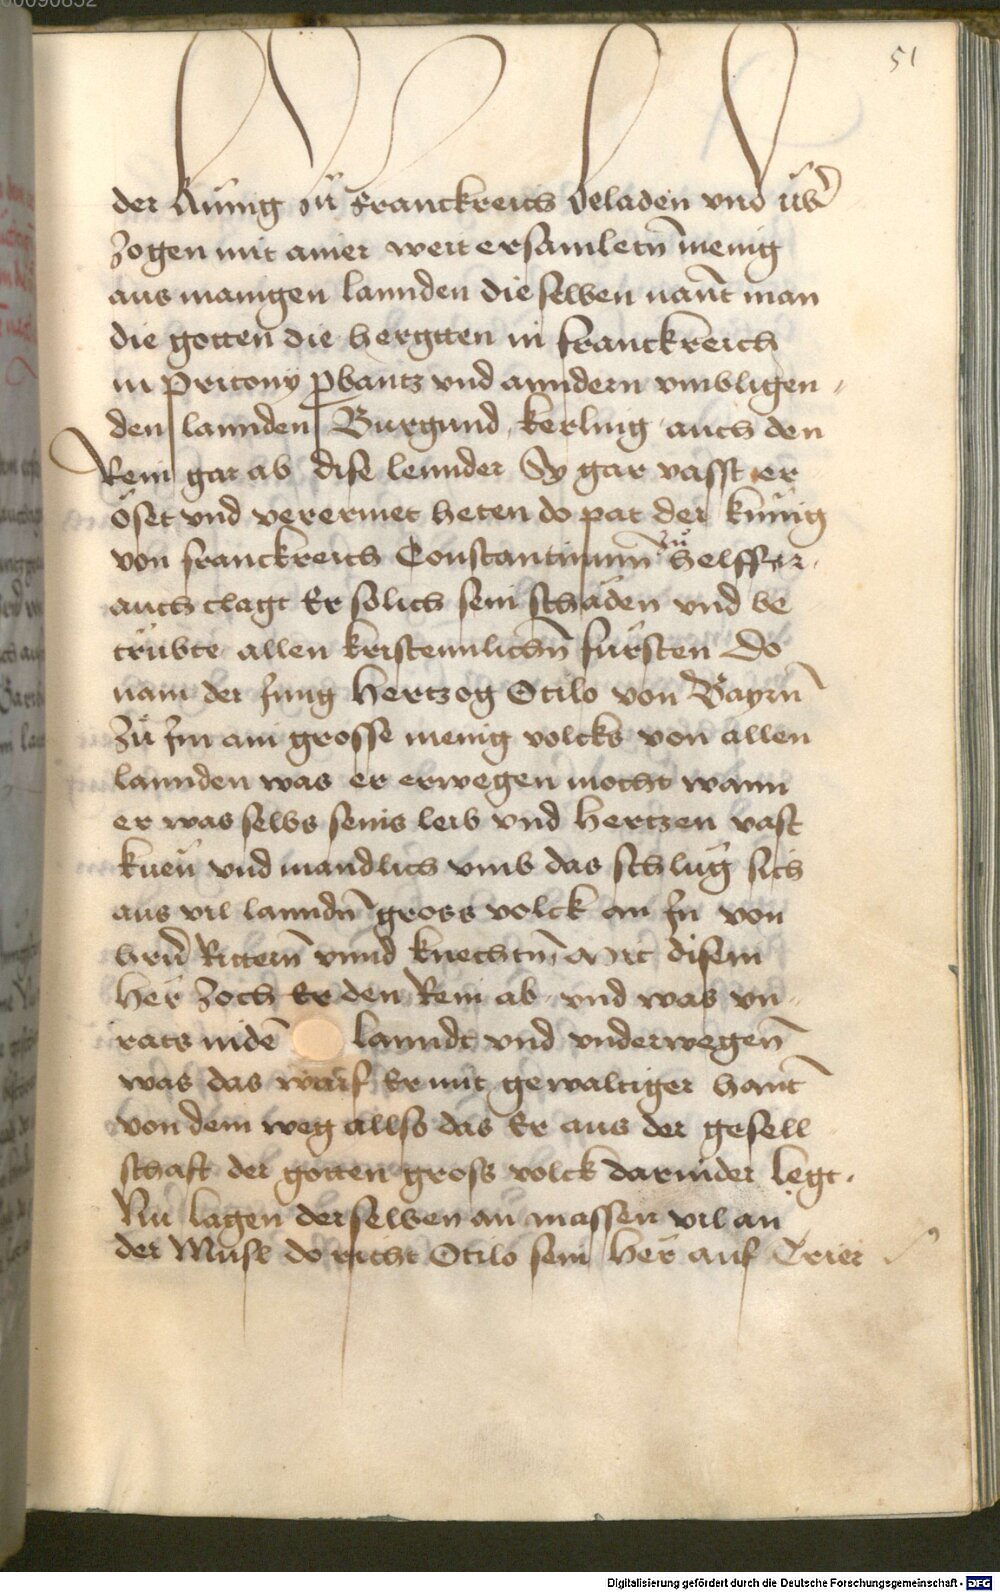 00090832
51
der Kunig zü Franckreich beladen vnd üb̄
Zogen mit ainer weit ersamletn̄ menig
aus manigen lannden die selben nant man
die gotten die hergtten in franckreich
in pritony pbantz vnd anndern vmbligen
den lannden Burgund kerling auch den
Rein gar ab dise lennder Sy gar vasst er
öset vnd verermet heten do pat der künig
von franckreich Constantinum zü helffer
auch clagt Er solich sein schäden vnd be
trübte allen kristennlichn̄ fürsten Do
nam der Jung Hertzog Otilo von Bayrn̄
Zü Jm ain grosse menig volcks von allen
lannden was er erwegen mocht wann
er was selbs seins leib vnd hertzen vast
kuen vnd mandlich vmb das schlüg sich
aus vil lanndn̄ gross volck an Jn von
hern̄ Rittern̄ vnnd knechtn̄ Mit disem
Her Zoch Er den Rein ab vnd was vn
rats niden̄ lanndt vnd vnderwegen̄
was das warf Er mit gewaltiger hant
von dem weg allso das Er aus der gesell
schaft der gotten gross volck darnider legt.
Nu lagen derselben an massen vil an
der Musl do richt Otilo sein Her auf Trier
Digitalisierung gefördert durch die Deutsche Forschungsgemeinschaft - DFG